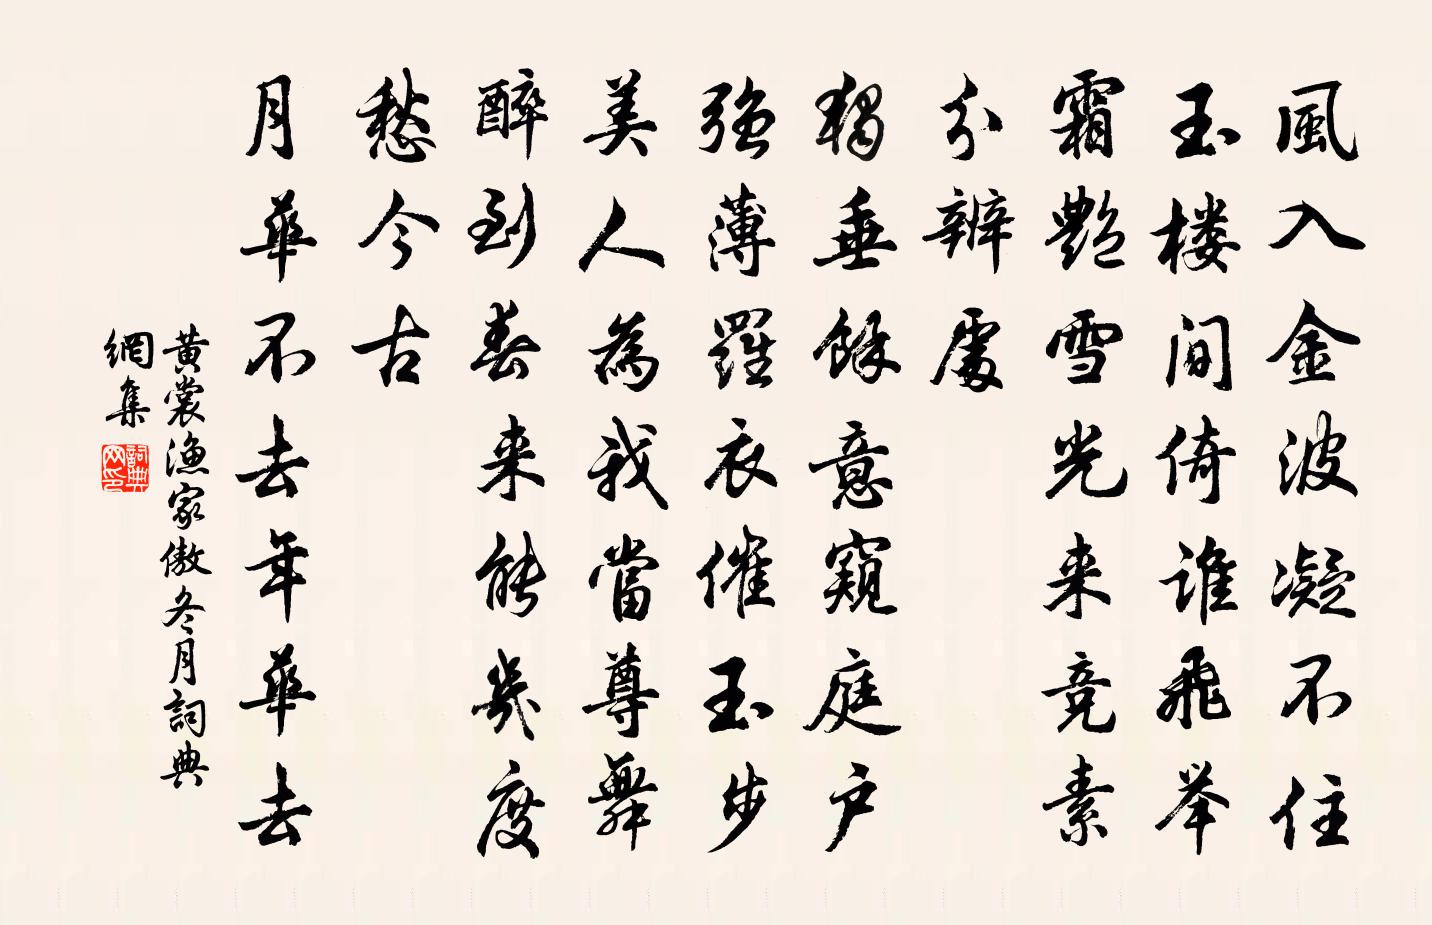 風入金波凝不住
玉楼间倚谁飛举
霜艷雪光来竞素
分辨處
獨垂餘意窺庭户
强薄羅衣催玉步
美人為我當尊舞
醉到春来能幾度
愁今古
月華不去年華去
黄裳渔家傲冬月詞典
網集
詞典
网印